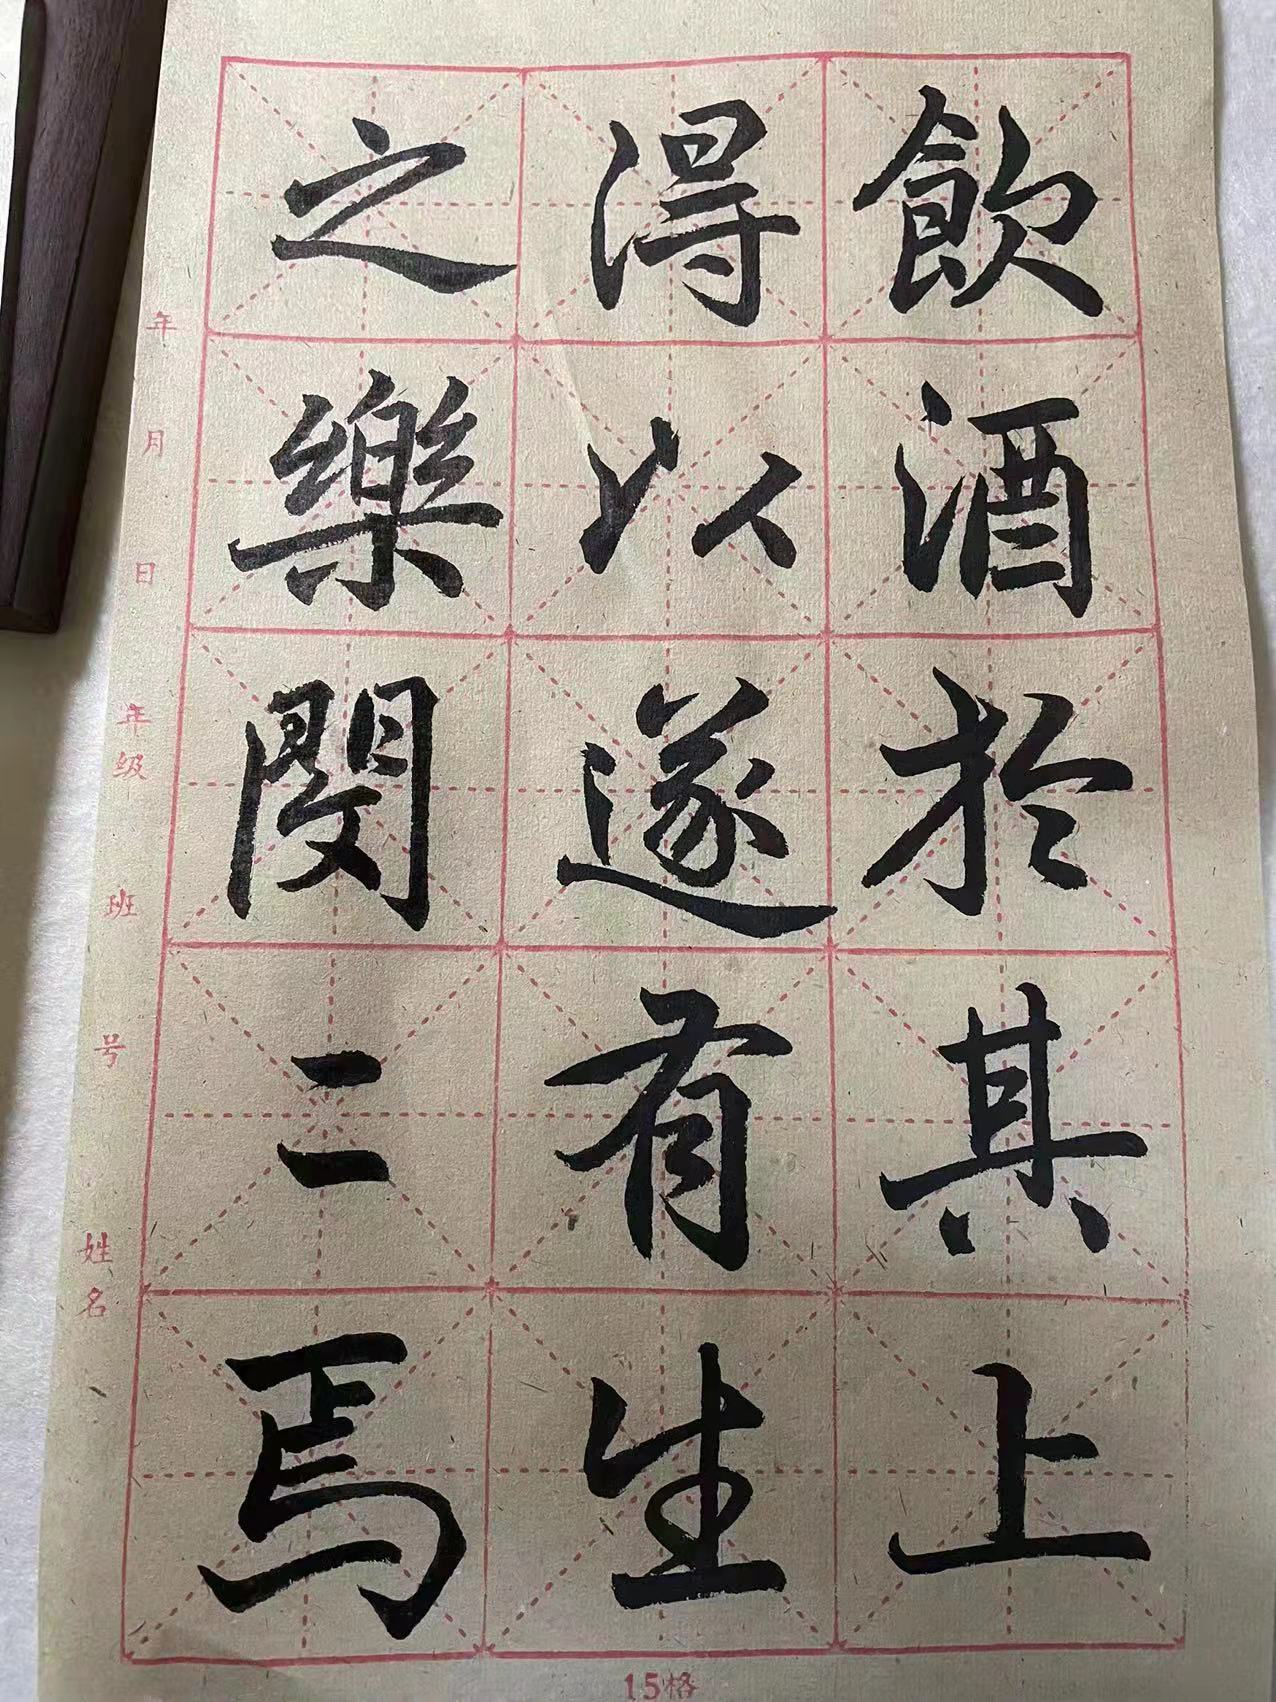 飲酒於其上
得以遂有生
之樂閔二焉
年 月 日 年級 班 号 姓名
15格